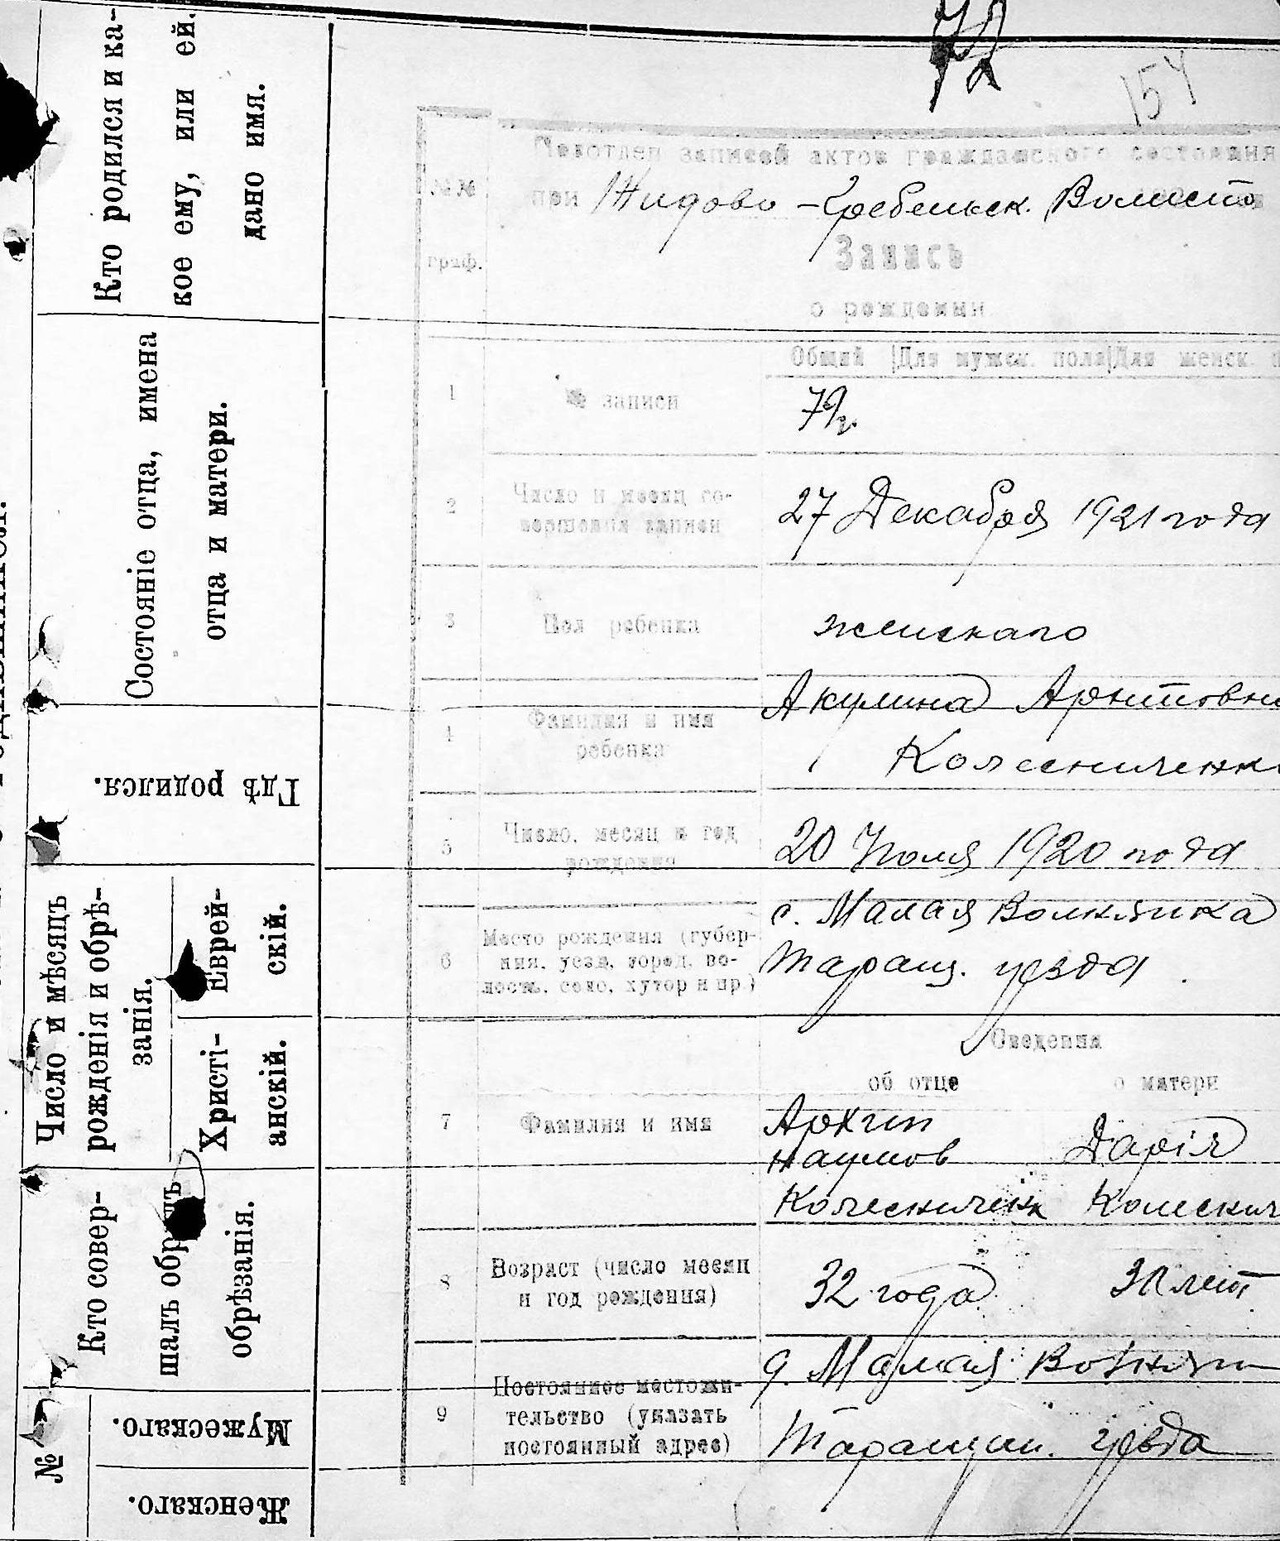 72
154
Кто родился и ка-
кое ему, или ей.
дано имя.
Состояніе отца, имена
отца и матери.
Гдѣ родился.
Число и мѣсяцъ
рожденія и обрѣ-
занія.
Еврей-
скій.
Христі-
анскій.
Кто совер-
шалъ обрядъ
обрѣзанія.
№
Мужескаго.
Женскаго.
Подотдел записей актов гражданского состояния
№№ граф.
при Жидово-Гребельск. Волисто
Запись
о рождении
Общий Для мужск. пола Для женск.
1 № записи 79
2 Число и месяц со-
вершения записи
27 Декабря 1921 года
3 Пол ребенка женскаго
4 Фамилия и имя
ребенка
Акулина
Колесниченк
5 Число, месяц и год
рождения
20 Июля 1920 года
6 Место рождения (губер-
ния, уезд, город, во-
лость, село, хутор и пр.)
с. Малая Волнянка
Таращ. уезда
Сведения
об отце о матери
7 Фамилия и имя
Архип
Наумов Дарія
Колесниченк Колеснич
8 Возраст (число месяц
и год рождения)
32 года лет
9 Постоянное местожи-
тельство (указать
постоянный адрес)
Малая
уезда